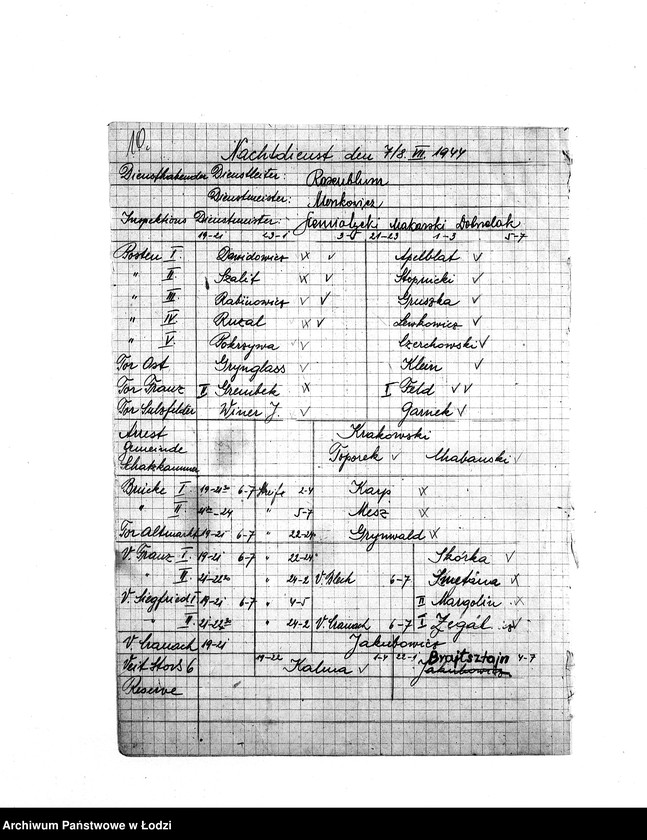 10.
Nachtdienst den 7/8. VII. 1944
Diensthabender Dienstleiter: Rosenblum
Dienstmeister: Moszkowicz
Inspektions Dienstmeister: Makarski Dobrolak
19-21 23-1 3-5 21-23 1-3 5-7
Posten I. Dawidowicz × ✓ Apelblat ✓
" II Szalit × ✓ Stopnicki ✓
" III Rabinowicz ✓ ✓ Gruszka ✓
" IV Ruzal × ✓ Lewkowicz ✓
" V. Pokrzywa ✓ ✓ Czerchowski ✓
Tor Ost. Grynglass ✓ Klein ✓
Tor Franz II Grembek × I Feld ✓ ✓
Tor Sulzfelder Winer J. ✓ Garnek ✓
Arrest Krakowski
Gemeinde Toporek ✓ Chabanski ✓
Schatzkammer
Brücke I 19-21³⁰ 6-7 Streife 2-4 Karp ×
" II 21³⁰-24 " 5-7 Mesz ×
Tor Altmarkt 19-21 6-7 " 22-24 Grynwald ×
V. Franz I 19-21 6-7 " 22-24 Skórka ✓
" II. 21-22³⁰ " 24-2 V. Blech 6-7 Smetana ×
V. Siegfried I 19-21 6-7 " 4-5 II Margolin ×
" II 21-22³⁰ " 24-2 V. Cranach 6-7 I Zegál ×
V. Cranach 19-21 Jakubowicz
Veit Stoss 6 19-22 Kalma ✓ 1-4 22-1 Brajtsztajn 4-7
Jakubowicz
Reserve
Archiwum Państwowe w Łodzi